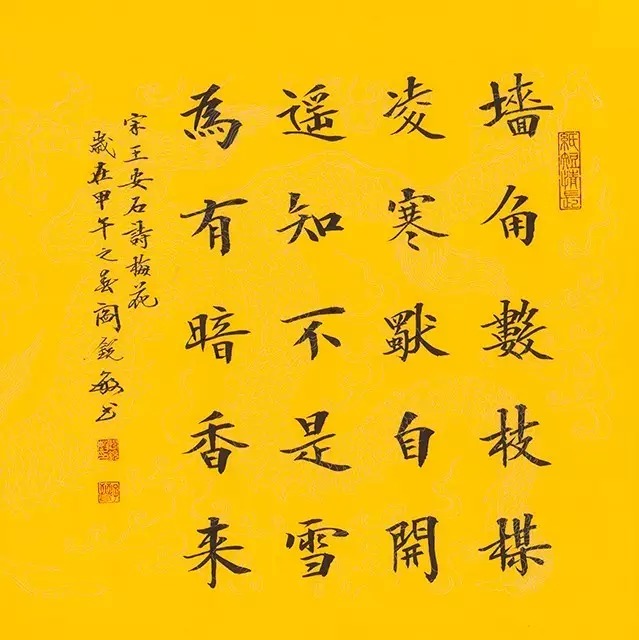 紙短情長
墙角數枝楳
凌寒獨自開
遥知不是雪
為有暗香来
宋王安石詩梅花
歲在甲午之春閻銳敏书